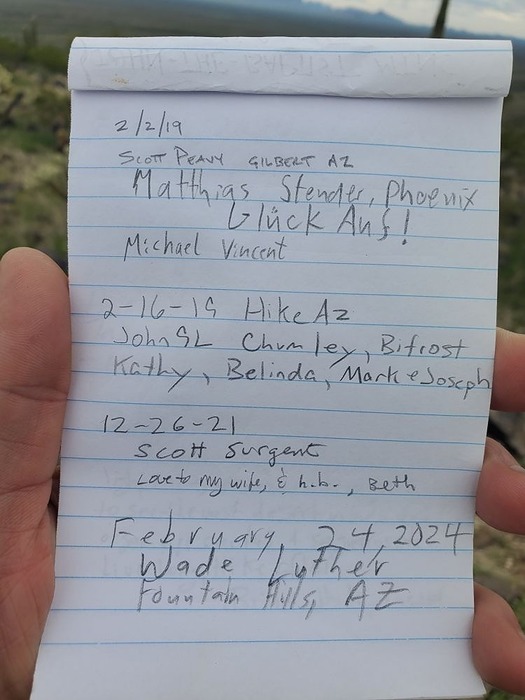 2/2/19
Scott Peavy Gilbert AZ
Matthias Stender, Phoenix
Glück Auf!
Michael Vincent
2-16-19 Hike Az
John9L Chumley, Bifrost
Kathy, Belinda, Mark e Joseph
12-26-21
Scott Surgent
Love to my wife, & h.b., Beth
February, 24, 2024
Wade Luther
Fountain Hills, AZ